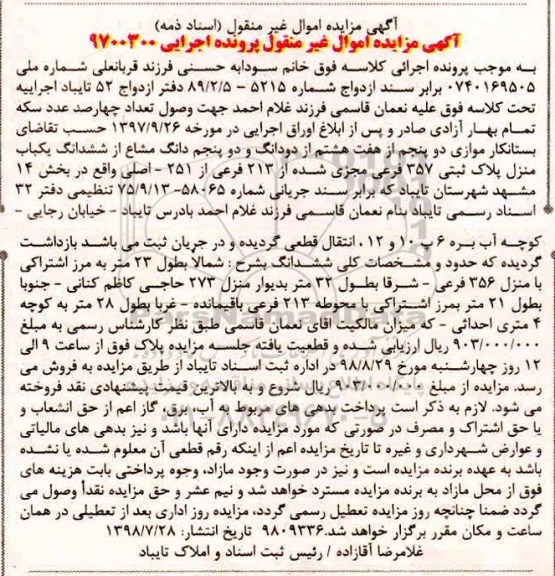 آگهی مزایده اموال غیر منقول (اسناد ذمه)
آگهی مزایده اموال غیر منقول پرونده اجرایی ۹۷۰۰۳۰۰
به موجب پرونده اجرائی کلاسه فوق خانم سودابه حسنی فرزند قربانعلی شماره ملی
۰۷۴۰۱۶۹۵۰۵ برابر سند ازدواج شماره ۵۲۱۵ – ۸۹/۲/۵ دفتر ازدواج ۵۲ تایباد اجراییه
تحت کلاسه فوق علیه نعمان قاسمی فرزند غلام احمد جهت وصول تعداد چهارصد عدد سکه
تمام بهار آزادی صادر و پس از ابلاغ اوراق اجرایی در مورخه ۱۳۹۷/۹/۲۶ حسب تقاضای
بستانکار موازی دو پنجم از هفت هشتم از دودانگ و دو پنجم دانگ مشاع از ششدانگ یکباب
منزل پلاک ثبتی ۳۵۷ فرعی مجزی شده از ۲۱۳ فرعی از ۲۵۱ - اصلی واقع در بخش ۱۴
مشهد شهرستان تایباد که برابر سند جریانی شماره ۵۸۰۶۵- ۷۵/۹/۱۳ تنظیمی دفتر ۳۲
اسناد رسمی تایباد بنام نعمان قاسمی فرزند غلام احمد بادرس تایباد - خیابان رجایی -
کوچه آب بره ۶ پ ۱۰ و ۱۲ ، انتقال قطعی گردیده و در جریان ثبت می باشد بازداشت
گردیده که حدود و مشخصات کلی ششدانگ بشرح : شمالا بطول ۲۳ متر به مرز اشتراکی
با منزل ۳۵۶ فرعی - شرقا بطول ۳۲ متر بدیوار منزل ۲۷۳ حاجی کاظم کنانی - جنوبا
بطول ۲۱ متر بمرز اشتراکی با محوطه ۲۱۳ فرعی باقیمانده - غربا بطول ۲۸ متر به کوچه
۴ متری احداثی - که میزان مالکیت آقای نعمان قاسمی طبق نظر کارشناس رسمی به مبلغ
۹۰۳/۰۰۰/۰۰۰ ریال ارزیابی شده و قطعیت یافته جلسه مزایده پلاک فوق از ساعت ۹ الی
۱۲ روز چهارشنبه مورخ ۹۸/۸/۲۹ در اداره ثبت اسناد تایباد از طریق مزایده به فروش می
رسد. مزایده از مبلغ ۹۰۳/۰۰۰/۰۰۰ ریال شروع و به بالاترین قیمت پیشنهادی نقد فروخته
می شود. لازم به ذکر است پرداخت بدهی های مربوط به آب، برق، گاز اعم از حق انشعاب و
یا حق اشتراک و مصرف در صورتی که مورد مزایده دارای آنها باشد و نیز بدهی های مالیاتی
و عوارض شهرداری و غیره تا تاریخ مزایده اعم از اینکه رقم قطعی آن معلوم شده یا نشده
باشد به عهده برنده مزایده است و نیز در صورت وجود مازاد، وجوه پرداختی بابت هزینه های
فوق از محل مازاد به برنده مزایده مسترد خواهد شد و نیم عشر و حق مزایده نقدأ وصول می
گردد ضمنا چنانچه روز مزایده تعطیل رسمی گردد، مزایده روز اداری بعد از تعطیلی در همان
ساعت و مکان مقرر برگزار خواهد شد.۹۸۰۹۳۳۶ تاریخ انتشار: ۱۳۹۸/۷/۲۸
غلامرضا آقازاده / رئیس ثبت اسناد و املاک تایباد